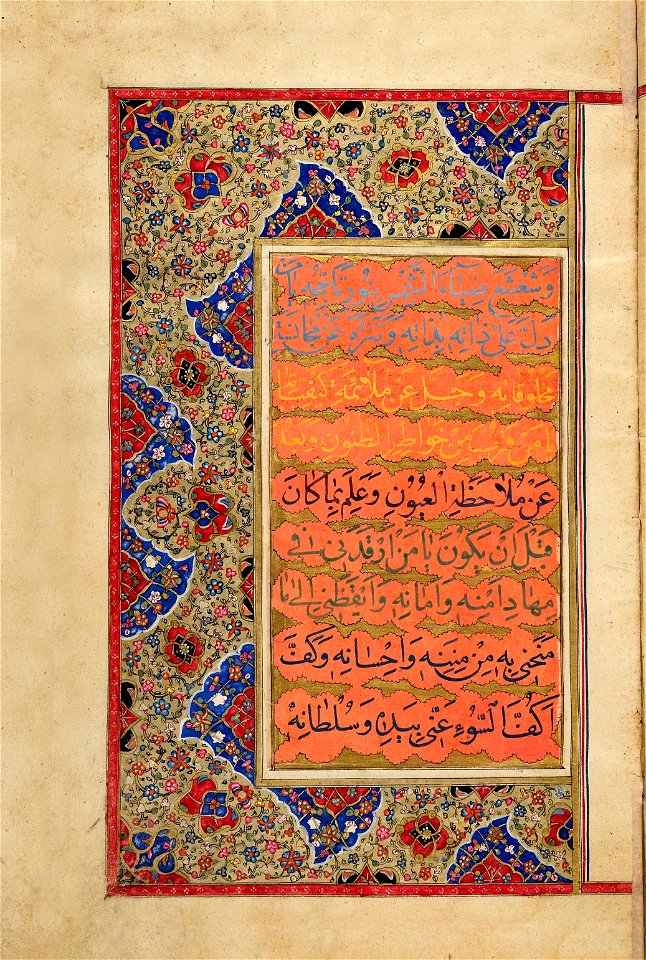 وَشَعْشَعَ ضِيَاءَ الشَّمْسِ بِنُورِ تَأَجُّجِهِ يَا مَنْ
دَلَّ عَلٰى ذَاتِهِ بِذَاتِهِ وَتَنَزَّهَ عَنْ مُجَانَسَةِ
مَخْلُوقَاتِهِ وَجَلَّ عَنْ مُلَائَمَةِ كَيْفِيَّاتِهِ
يَا مَنْ قَرُبَ مِنْ خَوَاطِرِ الظُّنُونِ وَبَعُدَ
عَنْ مُلَاحَظَةِ الْعُيُونِ وَعَلِمَ بِمَا كَانَ
قَبْلَ اَنْ يَكُونَ يَا مَنْ اَرْقَدَنِي فِي
مِهَادِ اَمْنِهِ وَاَمَانِهِ وَاَيْقَظَنِي اِلٰى مَا
مَنَحَنِي بِهِ مِنْ مِنَنِهِ وَاِحْسَانِهِ وَكَفَّ
اَكُفَّ السُّوءِ عَنِّي بِيَدِهِ وَسُلْطَانِهِ